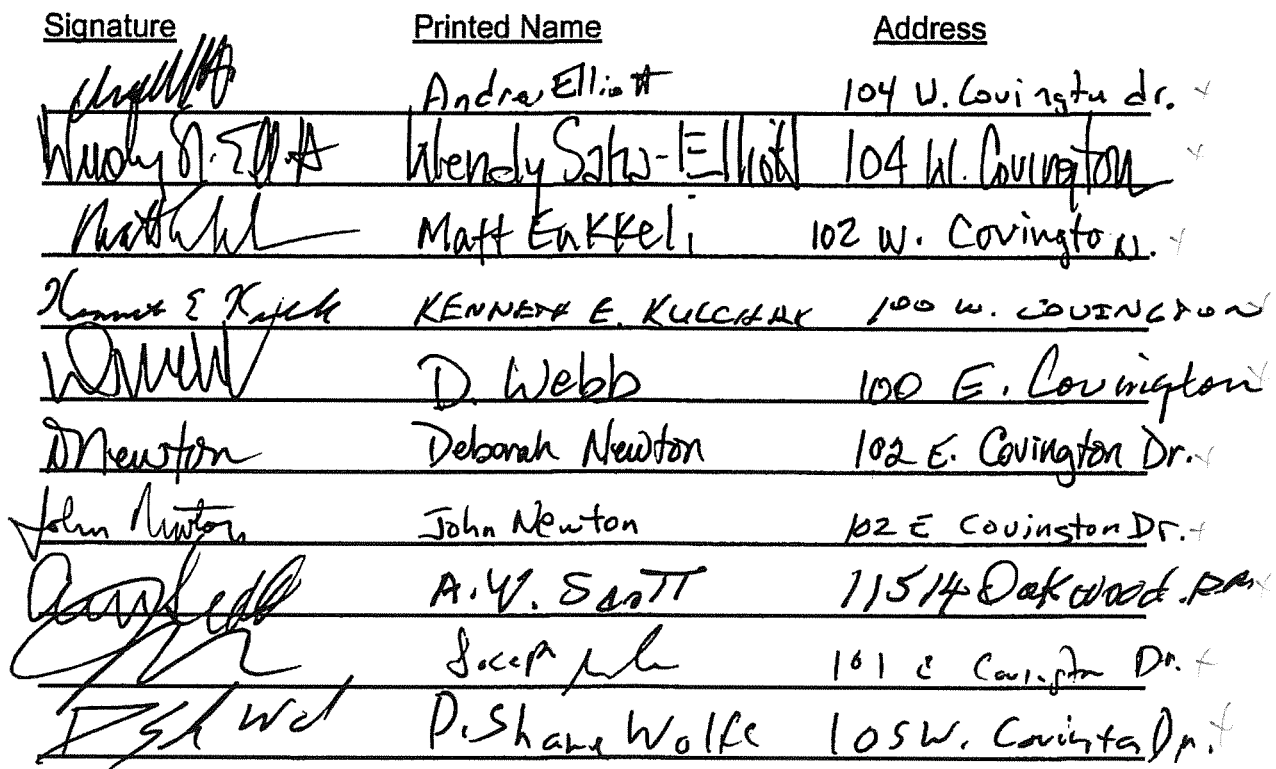 Signature Printed Name Address
Andrew Elliott 104 W. Covington dr.
Wendy Elliott Wendy -Elliott 104 W. Covington
Matt Enkkeli 102 W. Covington
KENNETH E. KULCHAK 100 W. COVINGTON
D. Webb 100 E. Covington
DNewton Deborah Newton 102 E. Covington Dr.
John Newton John Newton 102 E Covington Dr.
A.W. Scott 11514 Oakwood Dr.
Joseph 101 E Covington Dr.
D. Shane Wolfe 105 W. Covington Dr.